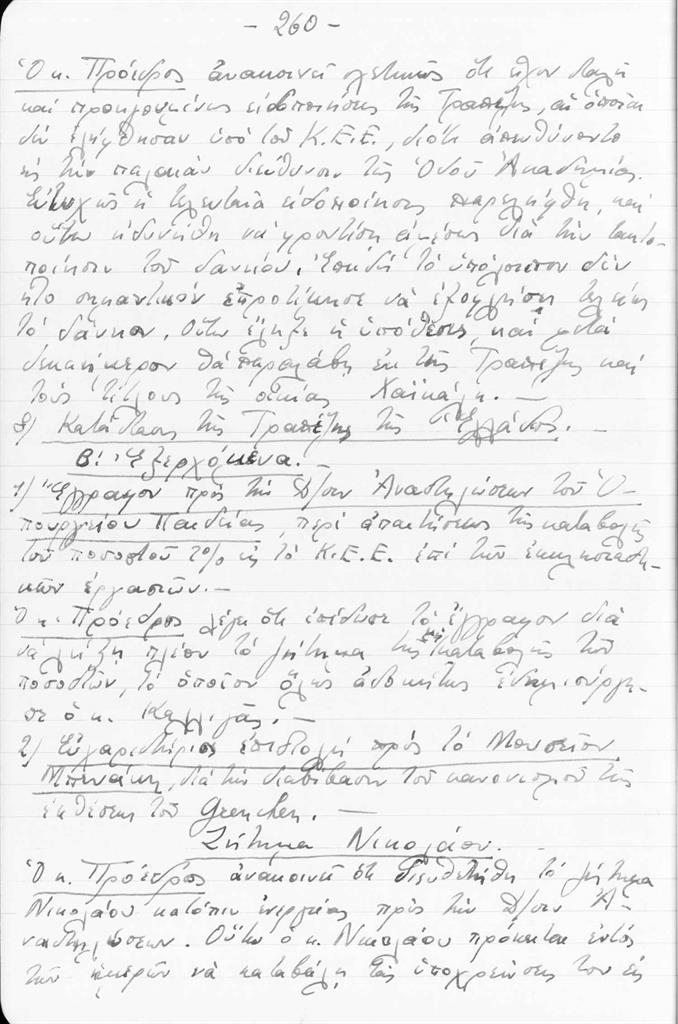 - 260 -
Ὁ κ. Πρόεδρος ἀνακοινεῖ σχετικῶς ὅτι εἶχον σταλῆ
καὶ προηγουμένως εἰδοποιήσεις τῆς Τραπέζης, αἱ ὁποῖαι
δὲν ἐλήφθησαν ὑπὸ τοῦ Κ.Ε.Ε., διότι ἀπηυθύνοντο
εἰς τὴν παλαιὰν διεύθυνσιν τῆς Ὁδοῦ Ἀκαδημίας.
Εὐτυχῶς ἡ τελευταία εἰδοποίησις παρελήφθη, καὶ
οὕτω ἠδυνήθη νὰ φροντίσῃ ἀμέσως διὰ τὴν τακτο-
ποίησιν τοῦ δανείου. Ἐπειδὴ τὸ ὑπόλοιπον δὲν
ἦτο σημαντικὸν ἐπροτίμησε νὰ ἐξοφλήσῃ τελείως
τὸ δάνειον. Οὕτω ἔληξε ἡ ὑπόθεσις, καὶ μετὰ
δεκαήμερον θὰ παραλάβῃ ἐκ τῆς Τραπέζης καὶ
τοὺς τίτλους τῆς οἰκίας Χαϊκάλη. -
8) Κατάστασις τῆς Τραπέζης τῆς Ἑλλάδος. -
Β: Ἐξερχόμενα. -
1) Ἔγγραφον πρὸς τὴν Δ/σιν Ἀναστηλώσεων τοῦ Ὑ-
πουργείου Παιδείας, περὶ ἀπαιτήσεως τῆς καταβολῆς
τοῦ ποσοστοῦ 2% εἰς τὸ Κ.Ε.Ε. ἐπὶ τῶν ἐκκλησιαστι-
κῶν ἐργασιῶν. -
Ὁ κ. Πρόεδρος λέγει ὅτι ἐπέδωσε τὸ ἔγγραφον διὰ
νὰ λήξῃ πλέον τὸ ζήτημα τῆς μὴ καταβολῆς τῶν
ποσοστῶν, τὸ ὁποῖον ὅλως ἀδοκήτως ἐδημιούργη-
σε ὁ κ. Καλλιγᾶς. -
2) Εὐχαριστήριος ἐπιστολὴ πρὸς τὸ Μουσεῖον
Μπενάκη, διὰ τὴν διαβίβασιν τοῦ κανονισμοῦ τῆς
ἐκθέσεως τοῦ Grenchen. -
Ζήτημα Νικολάου. -
Ὁ κ. Πρόεδρος ἀνακοινεῖ ὅτι διευθετήθη τὸ ζήτημα
Νικολάου κατόπιν ἐνεργείας πρὸς τὴν Δ/σιν Ἀ-
ναστηλώσεων. Οὕτω ὁ κ. Νικολάου πρόκειται ἐντὸς
τῶν ἡμερῶν νὰ καταβάλῃ τὰς ὑποχρεώσεις του εἰς